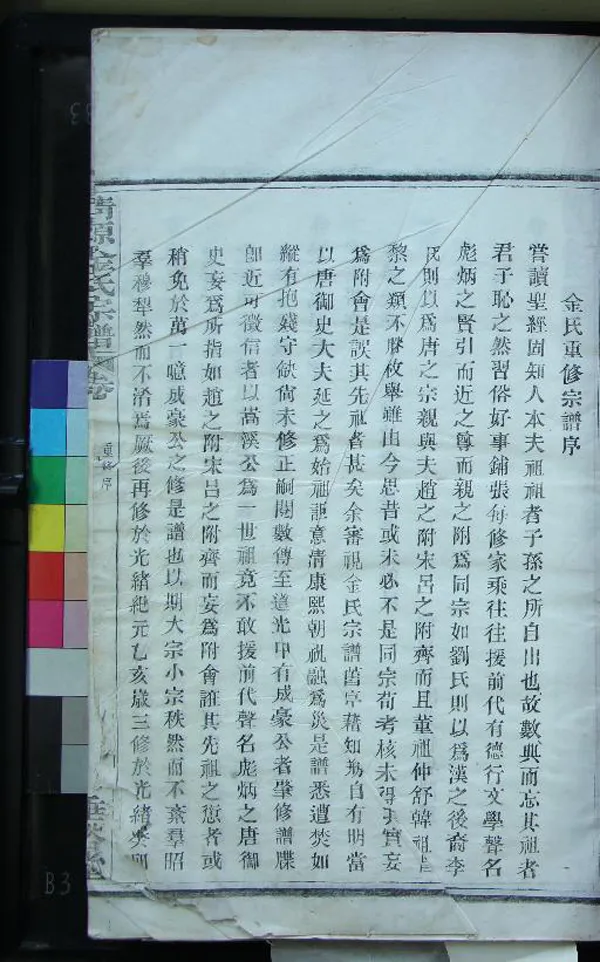 金氏重修宗譜序
嘗讀聖經固知人本夫祖祖者子孫之所自出也故數典而忘其祖者
君子恥之然習俗好事鋪張每修家乘往往援前代有德行文學聲名
彪炳之賢引而近之尊而親之附爲同宗如劉氏則以爲漢之後裔李
氏則以爲唐之宗親與夫趙之附宋呂之附齊而且董祖仲舒韓祖昌
黎之類不勝枚舉雖由今思昔或未必不是同宗苟考核未得其實妄
爲附會是誤其先祖者甚矣余審視金氏宗譜舊序藉知為自有明當
以唐御史大夫延之爲始祖詎意清康熙朝祝融爲災是譜悉遭焚如
縱有抱殘守缺尚未修正嗣閱數傳至道光甲有成豪公者肇修譜牒
卽近可徵信者以嵩溪公爲一世祖竟不敢援前代聲名彪炳之唐御
史妄爲所指如趙之附宋呂之附齊而妄爲附會誰其先祖之愆者或
稍免於萬一噫成豪公之修是譜也以期大宗小宗秩然而不紊羣昭
羣穆犁然而不淆焉厥後再修於光緒紀元乙亥歲三修於光緒
重修序
金氏宗譜
B3